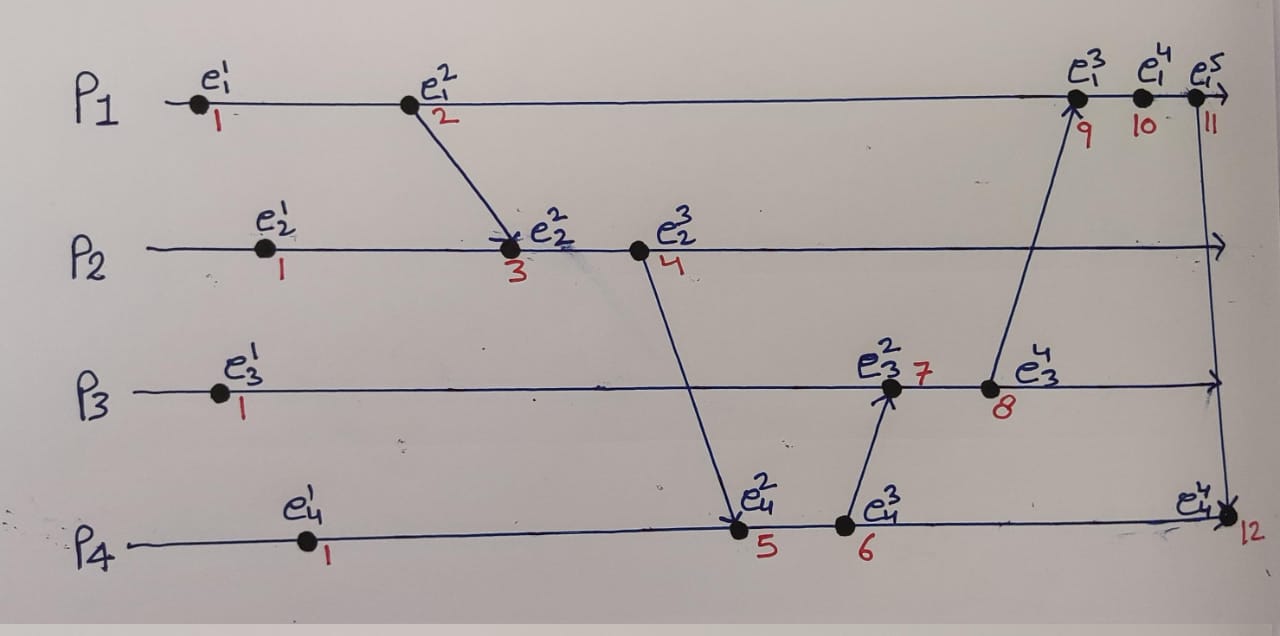 P1 e₁¹ 1 e₁² 2 e₁³ 9 e₁⁴ 10 e₁⁵ 11
P2 e₂¹ 1 e₂² 3 e₂³ 4
P3 e₃¹ 1 e₃² 7 e₃⁴ 8
P4 e₄¹ 1 e₄² 5 e₄³ 6 e₄⁴ 12